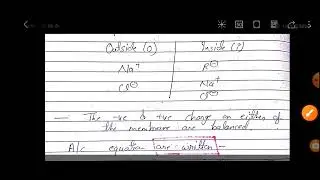 Outside (O) Inside (i)
Na⁺ R⊖
Cl⊖ Na⁺
Cl⊖
— The -ve & +ve charge on either of
the membrane are balanced.
A/c equation are written -